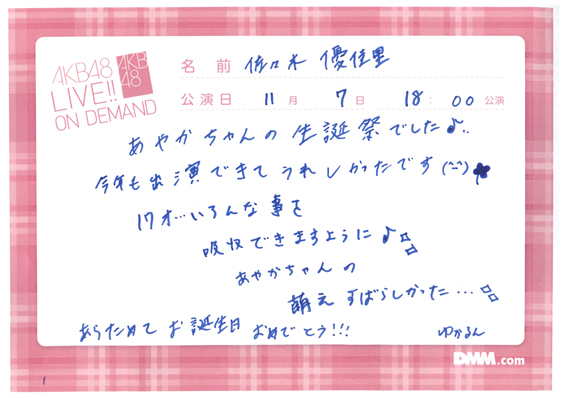 AKB48
LIVE!!
ON DEMAND
AKB
48
名前 佐々木 優佳里
公演日 11月 7日 18:00公演
あやかちゃんの生誕祭でした♪..
今年も出演できてうれしかったです(^-^)
17才…いろんな事を
吸収できますように♪
あやかちゃんの
萌えすばらしかった…
あらためてお誕生日おめでとう!!!
ゆかるん
DMM.com
1